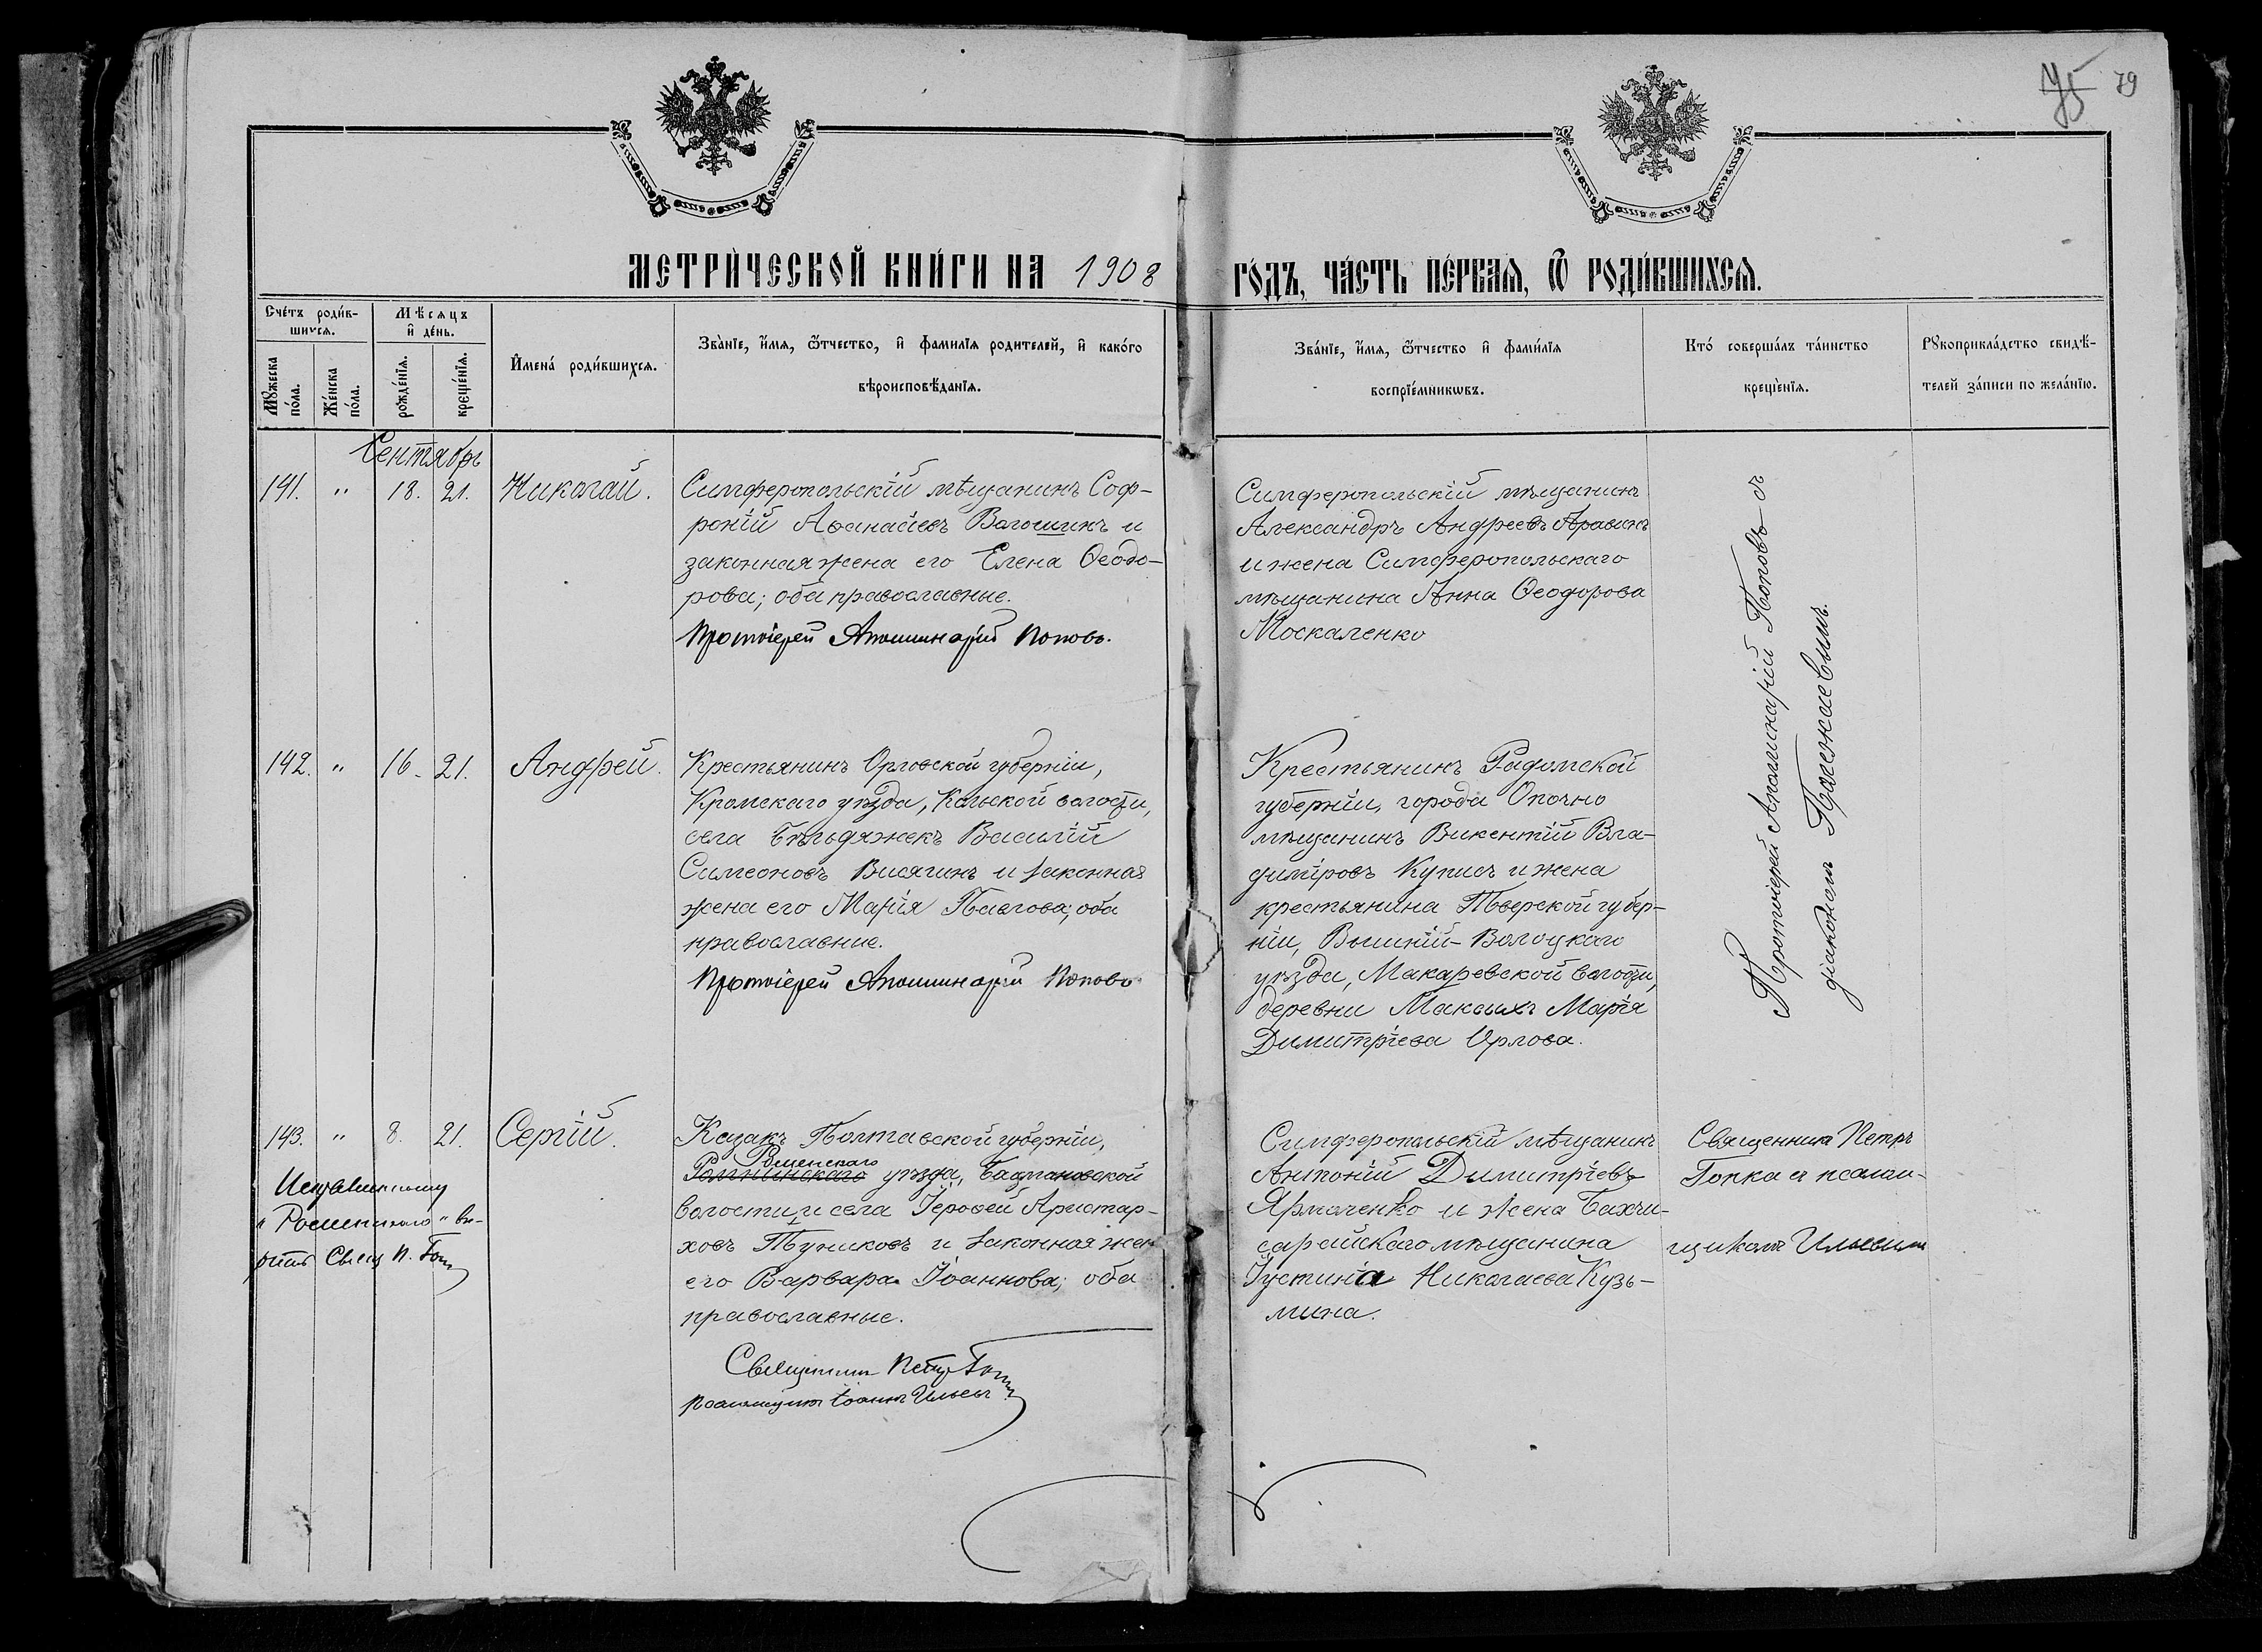 75 79
МЕТРИЧЕСКОЙ КНИГИ НА 1908 ГОДЪ, ЧАСТЬ ПЕРВАЯ, Ѿ РОДИВШИХСЯ.
Счетъ родив-
шихся.
Мꙋжеска
пола.
Женска
пола.
Мѣсяцъ
и день.
рожденія.
крещенія.
Имена родившихся.
Званіе, имя, ѿтчество, и фамилія родителей, и какого
вѣроисповѣданія.
Званіе, имя, ѿтчество и фамилія
воспріемникѡвъ.
Кто совершалъ таинство
крещенія.
Рꙋкоприкладство свидѣ-
телей записи по желанію.
Сентябрь
141. " 18. 21. Николай.
Симферопольскій мѣщанинъ Соф-
роній Аѳанасіевъ Волошинъ и
законная жена его Елена Ѳеодо-
рова; оба православные.
Протоіерей Аполлинарій Поповъ.
Симферопольскій мѣщанинъ
Александръ Андреевъ
и жена Симферопольскаго
мѣщанина Анна Ѳеодорова
Москаленко
Протоіерей Аполлинарій Поповъ съ
діакономъ
142. " 16. 21. Андрей.
Крестьянинъ Орловской губерніи,
Кромскаго уѣзда, волости,
села Бѣльдяжекъ Василій
Симеоновъ и законная
жена его Марія Павлова; оба
православные.
Протоіерей Аполлинарій Поповъ
Крестьянинъ Радомской
губерніи, города Опочно
мѣщанинъ Викентій Вла-
диміровъ и жена
крестьянина Тверской губер-
ніи, Вышній-Волоцкаго
уѣзда, Макаревской волости,
деревни Марія
Димитріева Орлова.
143. " 8. 21. Сергій.
Казакъ Полтавской губерніи,
Роменскаго
Ромнинскаго уѣзда, Бацмановской
волости и села Іероѳей Аристар-
ховъ и законная жена
его Варвара Іоаннова; оба
православные.
Священникъ Петръ Гопка
Псаломщикъ Іоаннъ Ильевъ
Исправленному
"Роменскаго" вѣ-
рить Свящ П. Гопка
Симферопольскій мѣщанинъ
Антоній Димитріевъ
Ярмоленко и жена Бахчи-
сарайскаго мѣщанина
Іустинія Николаева Кузь-
мина.
Священникъ Петръ
Гопка съ псалом-
щикомъ Ильевымъ